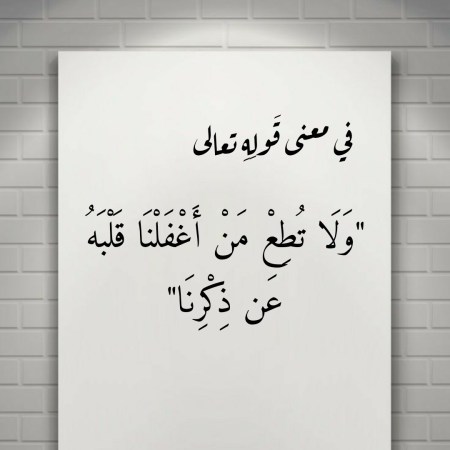 في معنى قَولِه تعالى
"وَلَا تُطِعْ مَنْ أَغْفَلْنَا قَلْبَهُ
عَن ذِكْرِنَا"